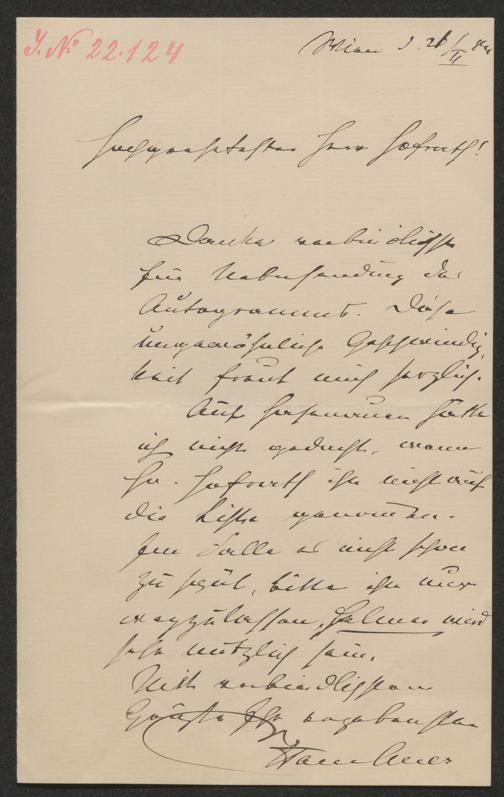 J. No 22.124
Wien d. 26/II
Hochgeehrtester Herr Hofrath!
Danke verbindlichst
für Uebersendung des
Autogramms. Diese
ungewöhnliche Geschwindig-
keit freut mich herzlich.
Auf hätte
ich nicht gedacht, wenn
Hr. Hofrath ihn nicht auf
die Liste
Im Falle es nicht schon
zu spät, bitte ihn nur
wegzulassen, wird
sehr nützlich sein.
Mit verbindlichsten
Grüßen Ihr ergebenster